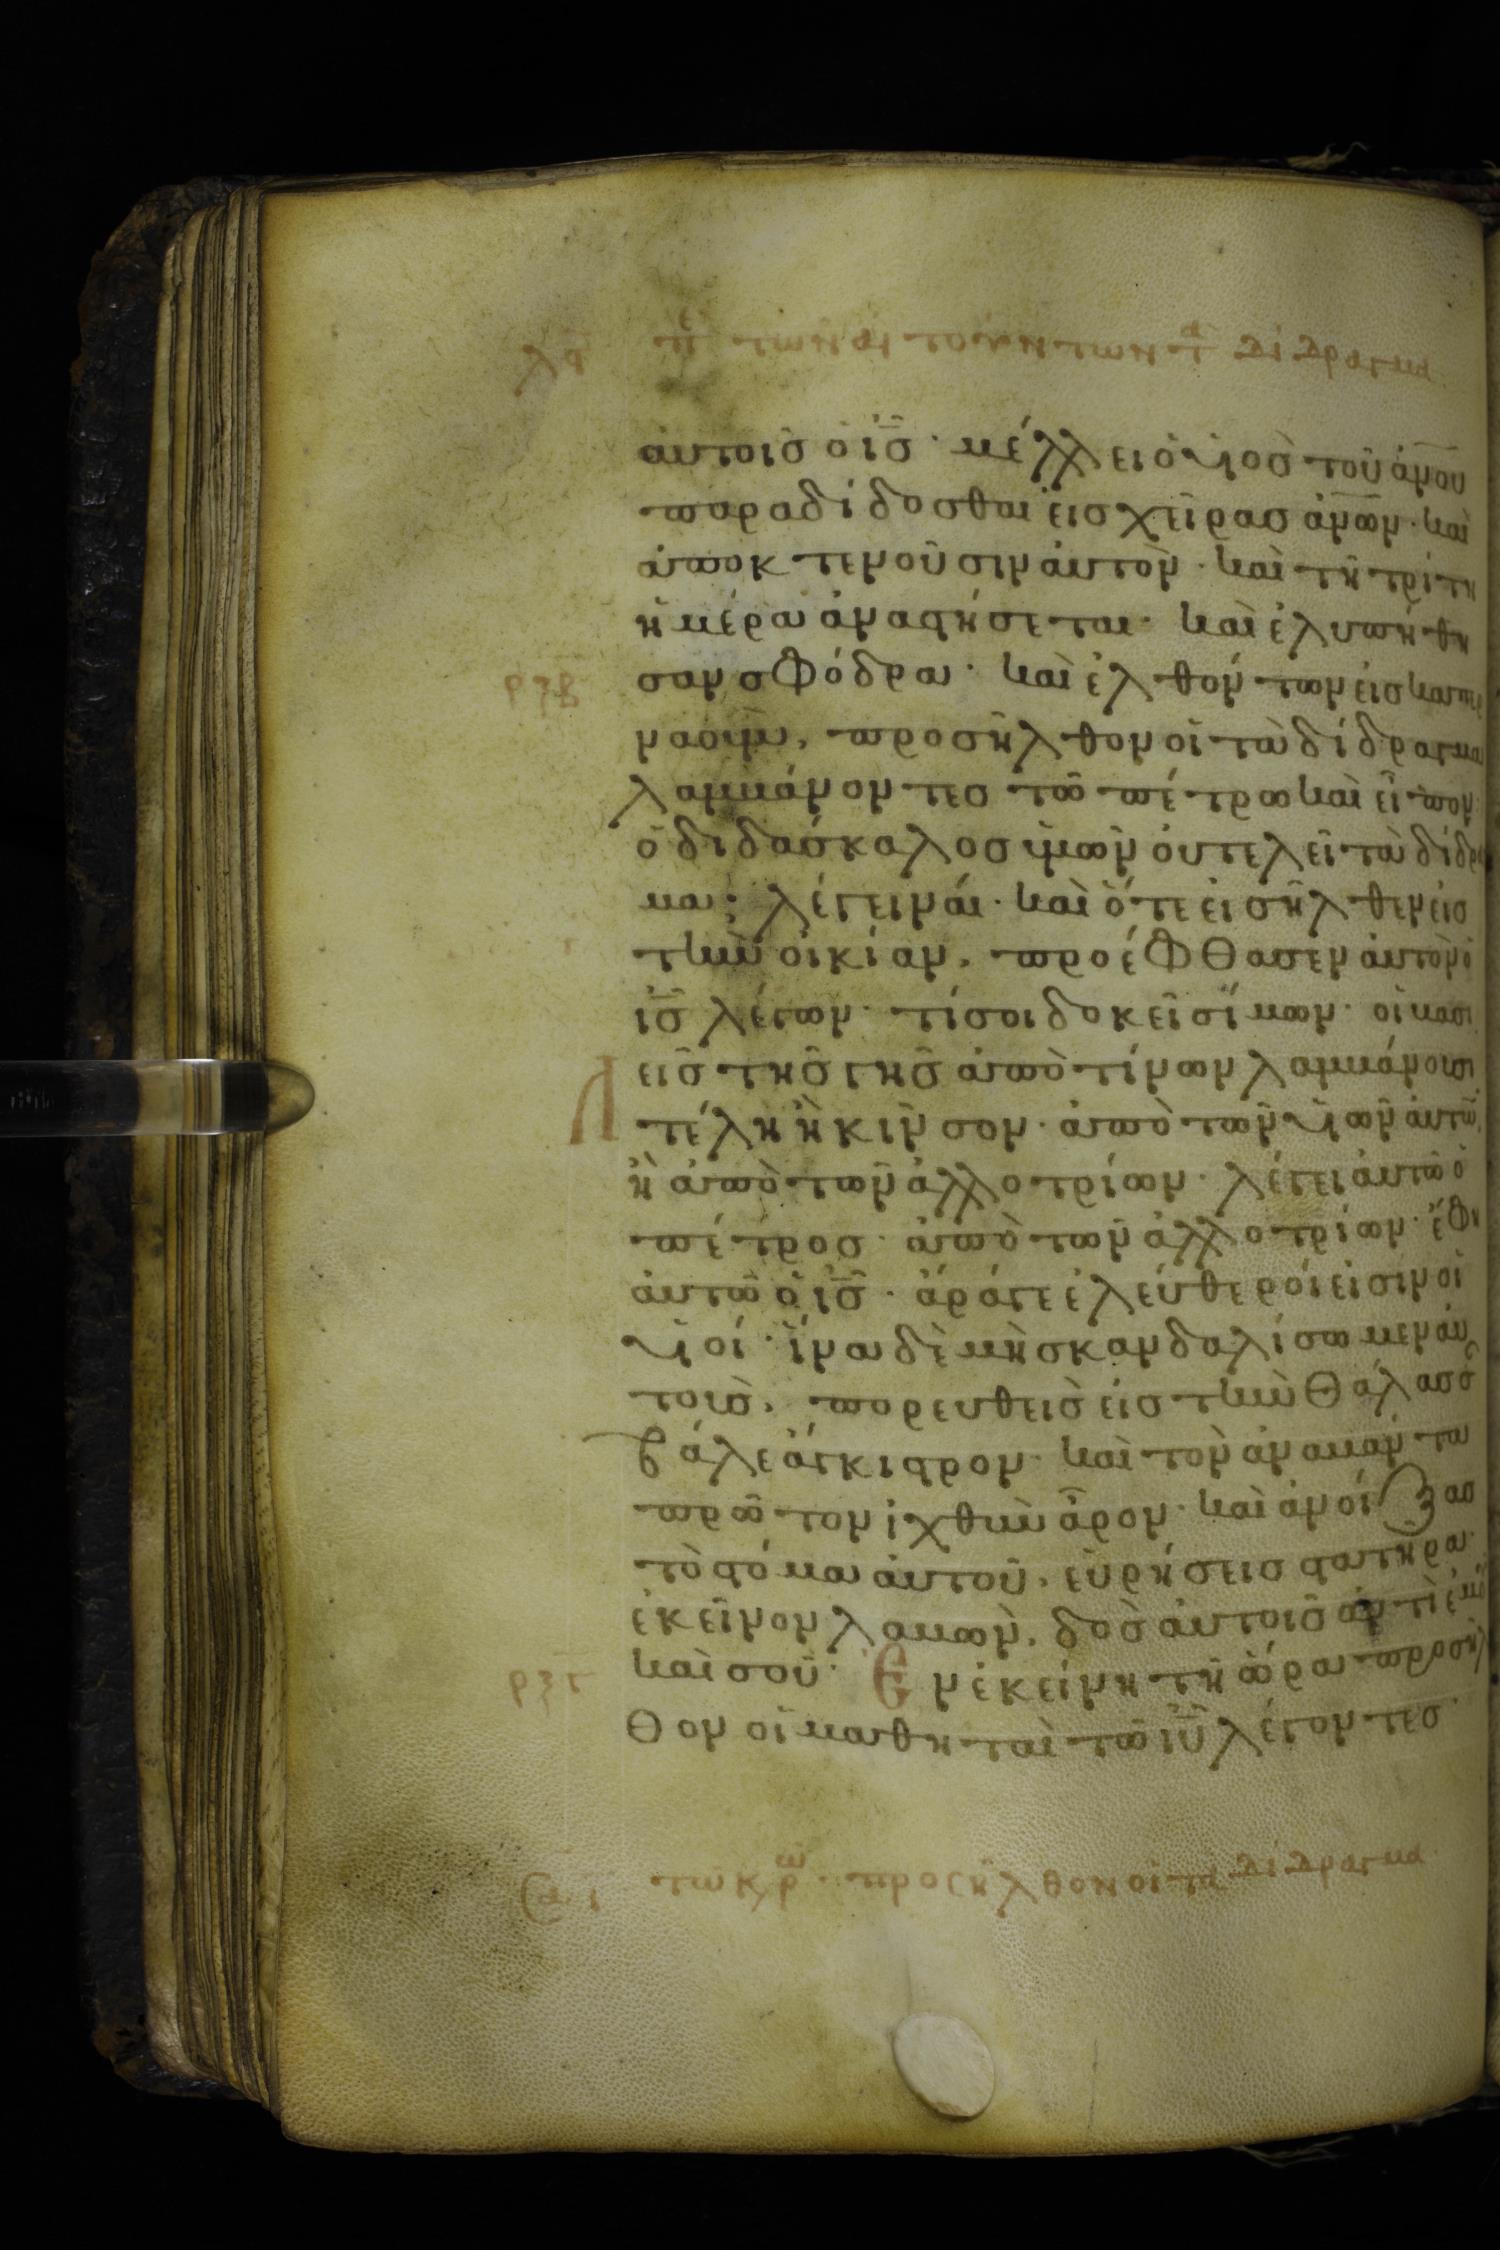 λα πε τῶν αἰτούντων τα δίδραγμα
αυτοις ὁ ις· μέλλει ὁ υιος τοῦ ανου
παραδίδοσθαι εις χεῖρας ανων· και
αποκτενοῦσιν αυτὸν· και τῆ τρίτη
ἡμέρα αναστήσεται· και ἐλυπήθη
σαν σφόδρα· και ἐλθόντων εις καπερ
ρξβ
ναοὺμ, προσῆλθον οἱ τὰ δίδραγμα
λαμβάνοντες τῶ πέτρω και εἶπον
ὁ διδάσκαλος ὑμῶν ου τελεῖ τὰ δίδραγ
μα; λέγει ναί· και ὅτε εισῆλθεν εις
τὴν οἰκίαν, προέφθασεν αυτὸν ὁ
ις λέγων· τί σοι δοκεῖ σίμων· οἱ βασι
λεῖς τῆς γῆς ἀπὸ τίνων λαμβάνουσι
τέλη ἢ κῆνσον· ἀπὸ τῶν υιῶν αυτῶν
ἢ ἀπὸ τῶν ἀλλοτρίων· λέγει αυτῶ ὁ
πέτρος· ἀπὸ τῶν ἀλλοτρίων· ἔφη
αυτῶ ὁ ις· ἄρά γε ἐλεύθεροί εἰσιν οἱ
υιοί· ἵνα δὲ μὴ σκανδαλίσωμεν αυ
τοὺς, πορευθεὶς εἰς τὴν θάλασσ
βάλε ἄγκιστρον· και τὸν ἀναβάντα
πρῶτον ἰχθὺν ἆρον· και ἀνοίξας
τὸ στόμα αυτοῦ, εὑρήσεις στατῆρα·
ἐκεῖνον λαβὼν, δὸς αυτοῖς ἀντὶ ἐμοῦ
και σοῦ· Εν ἐκείνη τῆ ὥρα προσῆλ
ρξγ
θον οἱ μαθηταὶ τῶ ιυ λέγοντες·
τῶ κρω· προσῆλθον οἱ τα δίδραγμα